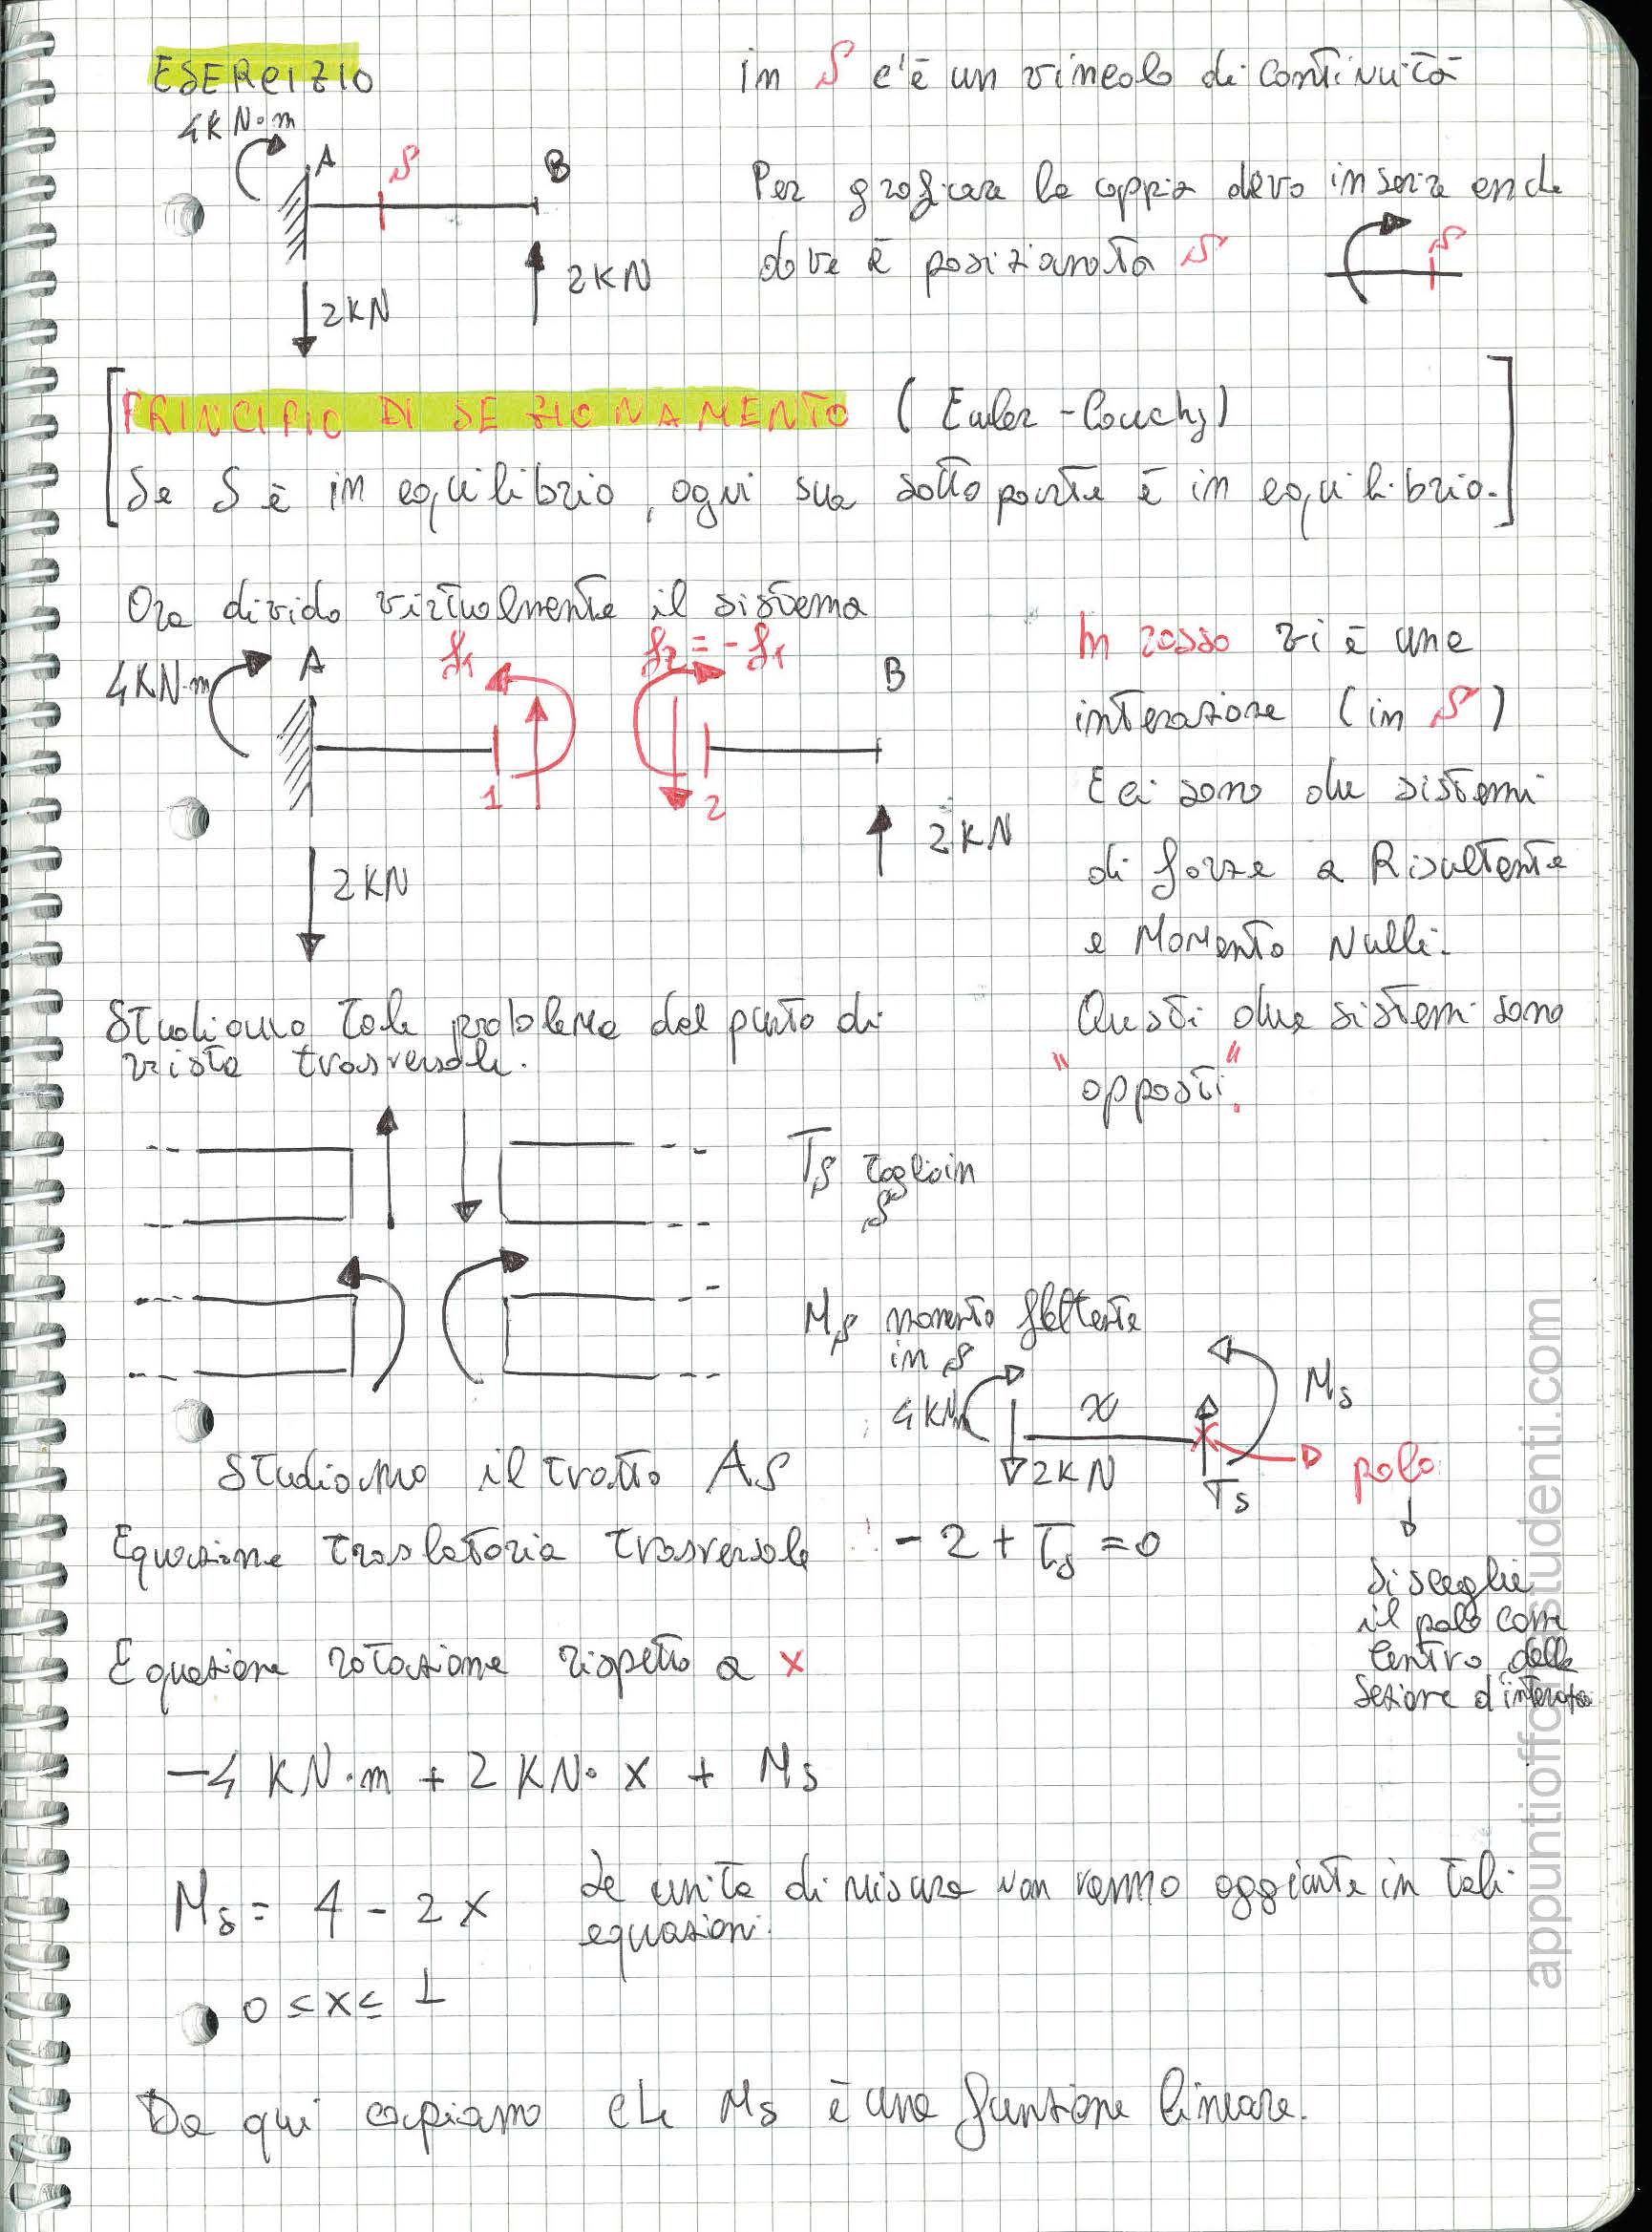 ESERCIZIO
in S c'è un vincolo di continuità
4KN·m
A
S
B
2KN
2KN
Per graficare la coppia devo inserire anche
dove è posizionata S
S
PRINCIPIO DI SEZIONAMENTO (Euler-Cauchy)
Se S è in equilibrio, ogni sua sottoparte è in equilibrio.
Ora divido virtualmente il sistema
4KN·m
A
f1
f2=-f1
B
1
2
2KN
2KN
In rosso vi è una
interazione (in S)
E ci sono due sistemi
di forze a Risultante
e Momento Nulli.
Questi due sistemi sono
"opposti".
Studiamo tale problema dal punto di
vista trasversale.
TS taglio in
S
MS momento flettente
in S
4KNm
x
Ms
2KN
Ts
polo
Si sceglie
il polo come
centro della
Sezione d'interesse
Studiamo il tratto AS
Equazione traslatoria trasversale : -2+Ts=0
Equazione rotazione rispetto a x
-4 KN·m + 2 KN· x + Ms
Ms = 4 - 2x
Le unità di misura non vanno aggiunte in tali
equazioni.
0 ≤ x ≤ L
Da qui capiamo che Ms è una funzione lineare.
appuntiofferstudenti.com